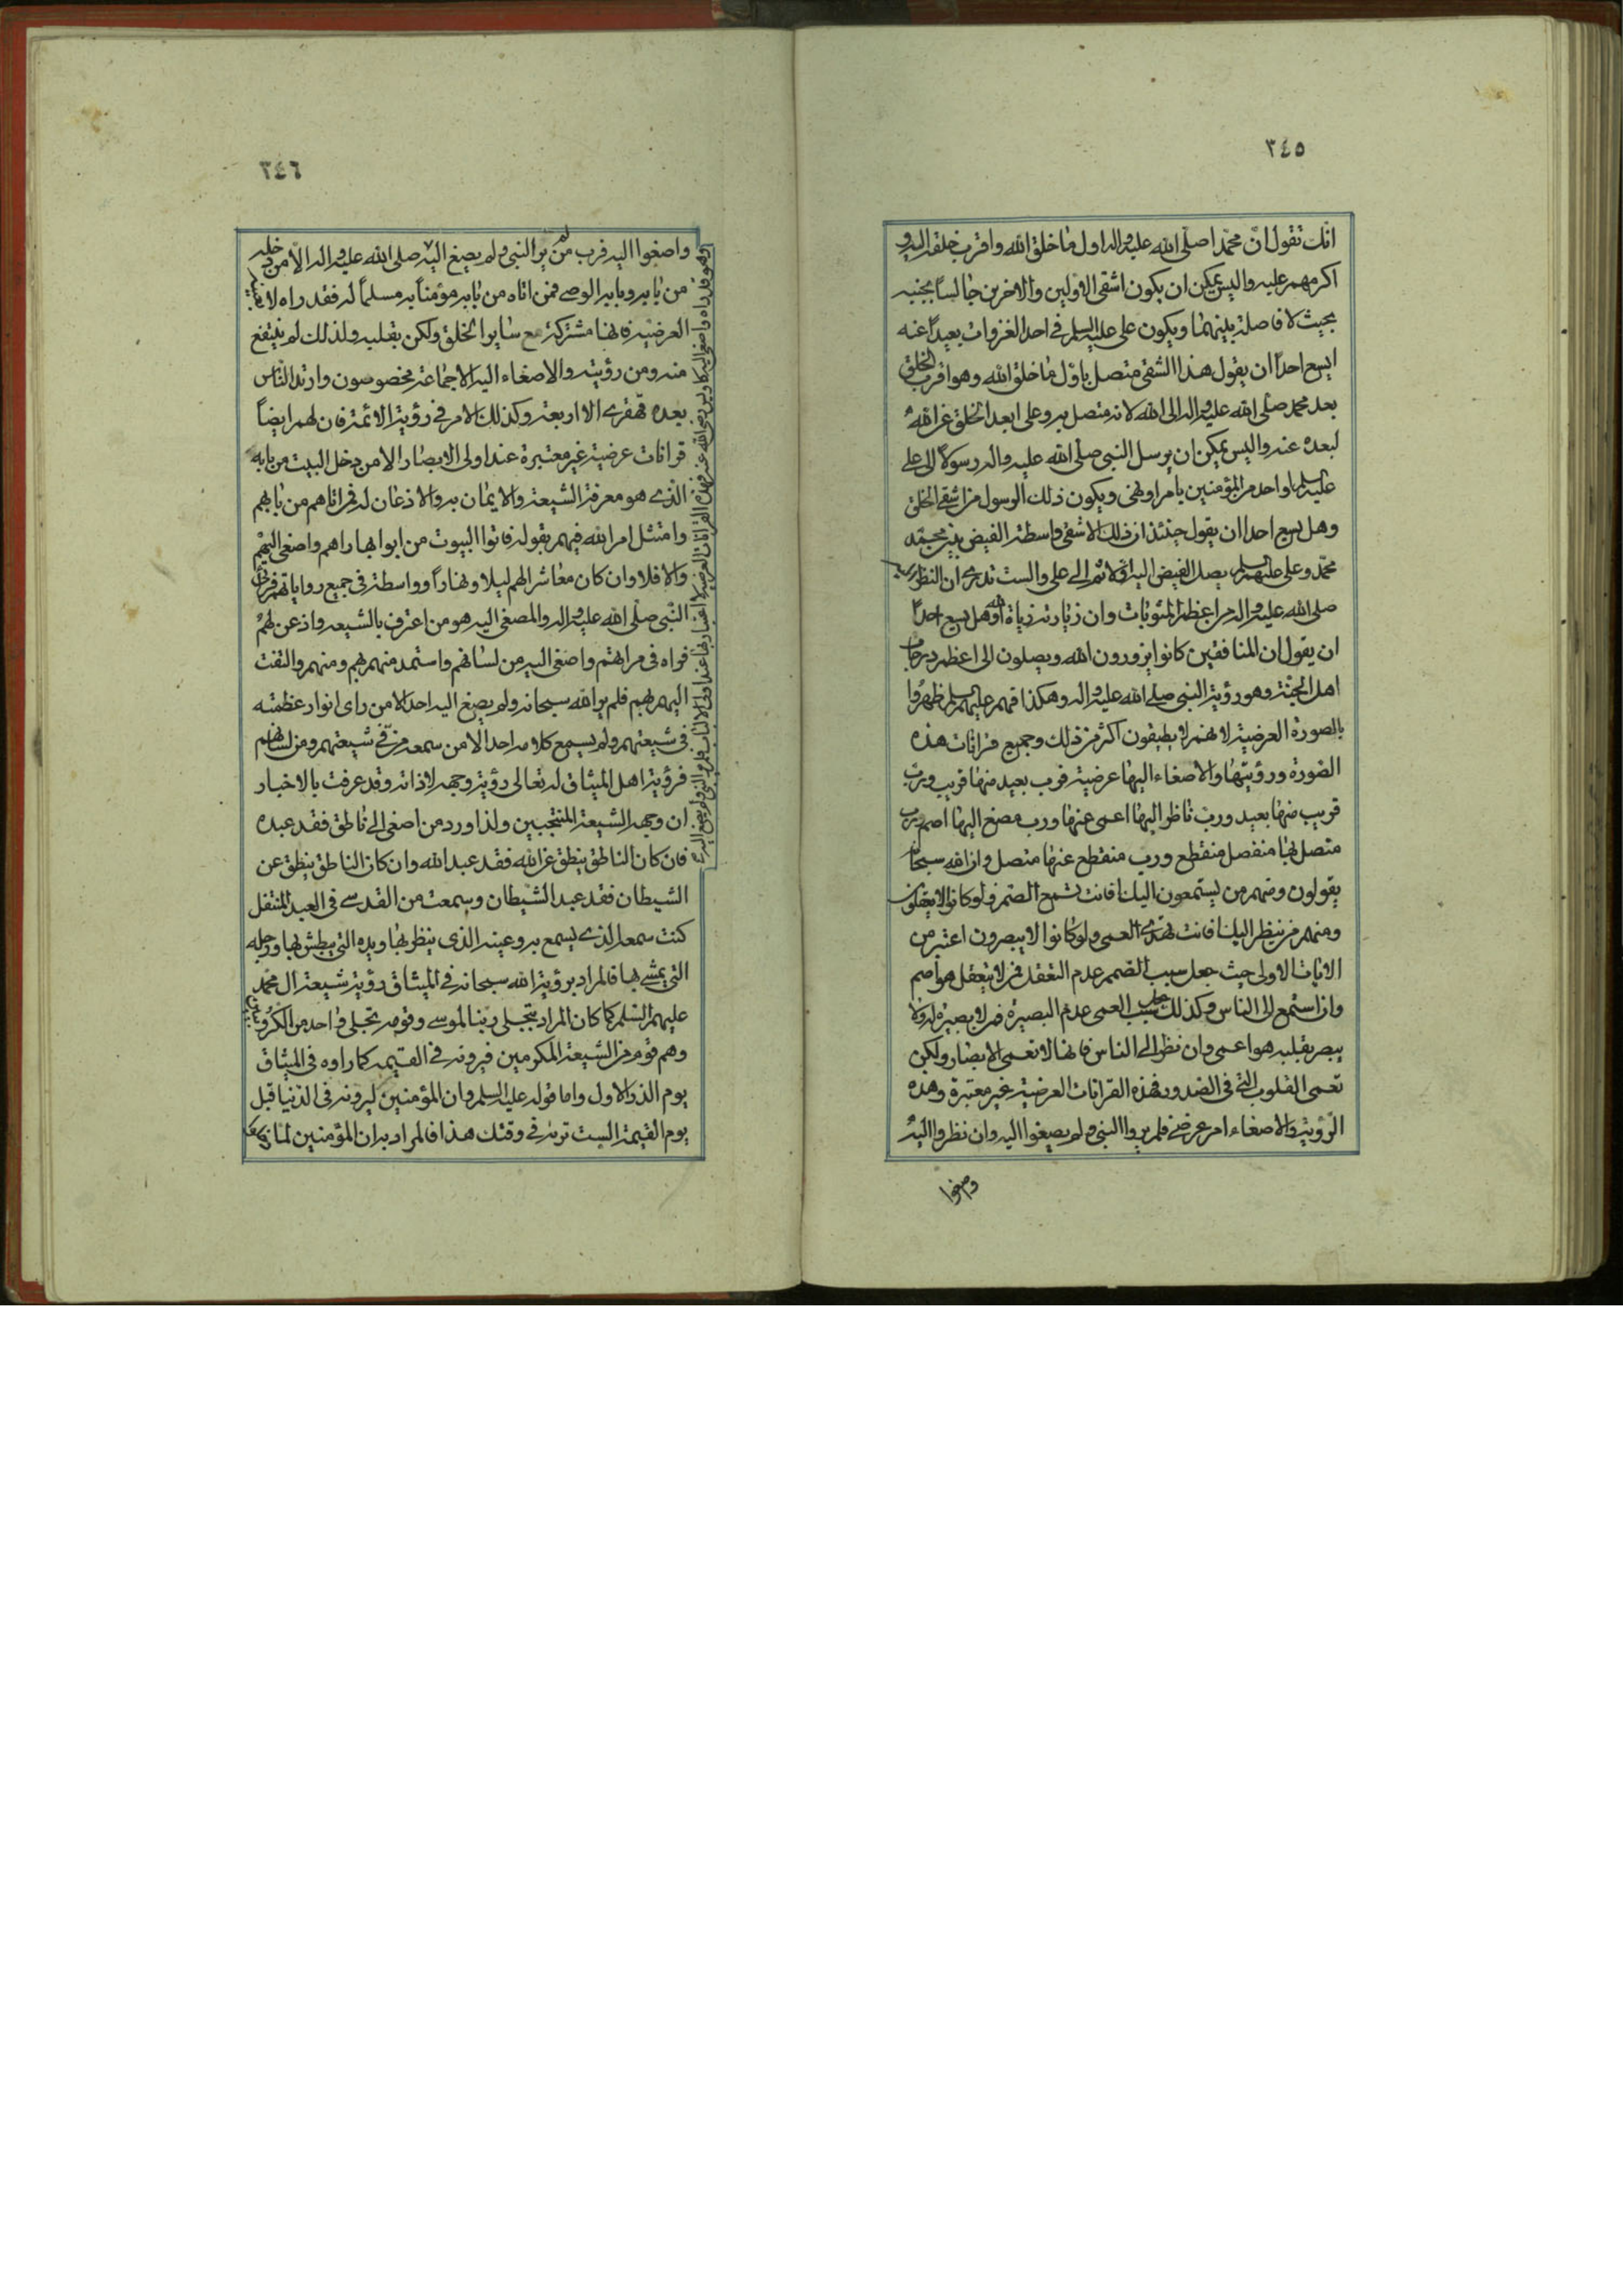 ٣٤٥
انك تقول ان محمدا صلى الله عليه واله اول ما خلق الله واقرب خلقه اليه و
اكرمهم عليه واليس يمكن ان يكون اشقى الاولين والاخرين جالسا بجنبه
بحيث لا فاصلة بينهما ويكون على عليه السلم فى احد الغزوات بعيدا عنه
ايسع احدا ان يقول هذا الشقى متصل باول ما خلق الله وهو اقرب الخلق
بعد محمد صلى الله عليه واله الى الله لانه متصل به وعلى ابعد الخلق عن الله
لبعده عنه واليس يمكن ان يرسل النبى صلى الله عليه واله رسولا الى على
عليه السلم او احد من المؤمنين بامر او نهى ويكون ذلك الرسول من اشقى الخلق
وهل يسع احدا ان يقول حينئذ ان ذلك الاشقى واسطة الفيض بين
محمد وعلى عليهما السلم يصل الفيض اليه اولا ثم الى على والست تدرى ان النظر اليه
صلى الله عليه واله من اعظم المثوبات وان زيارته زيارة الله وهل يسع احدا
ان يقول ان المنافقين كانوا يزورون الله ويصلون الى اعظم درجات
اهل الجنة وهو رؤية النبى صلى الله عليه واله وهكذا فهم عليهم السلم ظهروا
بالصورة العرضية لانهم لا يطيقون اكثر من ذلك وجميع قرانات هذه
الصورة ورؤيتها والاصغاء اليها عرضية فرب بعيد منها قريب ورب
قريب منها بعيد ورب ناظر اليها اعمى عنها ورب مصغ اليها اصم ورب
متصل بها منفصل منقطع ورب منقطع عنها متصل وان الله سبحانه
يقولون ومنهم من يستمعون اليك افانت تسمع الصم ولو كانوا لا يعقلون
ومنهم من ينظر اليك افانت تهدى العمى ولو كانوا لا يبصرون اعتبر من
الايات الاولى حيث جعل سبب الصمم عدم التعقل فمن لا يتعقل هو اصم
وان استمع الى الناس وكذلك جعل سبب العمى عدم البصيرة فمن لا بصيرة له ولا
يبصر بقلبه هو اعمى وان نظر الى الناس فانها لا تعمى الابصار ولكن
تعمى القلوب التى فى الصدور فهذه القرانات العرضية غير معتبرة وهذه
الرؤية والاصغاء امر عرضى فلم يروا النبى ولم يصيغوا اليه وان نظروا اليه
واصغوا
٣٤٦
واصغوا اليه فرب من لم ير النبى ولم يصغ اليه صلى الله عليه واله الا من دخله
من بابه وبابه الوصى فمن اتاه من بابه مؤمنا به مسلما له فقد راه لا
العرضية فانها مشتركة مع ساير الخلق ولكن بقلبه ولذلك لم ينتفع
منه ومن رؤيته والاصغاء اليه الا جماعة مخصوصون وارتد الناس
بعده قهقرى الا اربعة وكذلك الامر فى رؤية الائمة فان لهم ايضا
قرانات عرضية غير معتبرة عند اولى الابصار الا من دخل البيت من بابه
الذى هو معرفة الشيعة والايمان به والاذعان له فمن اتاهم من بابهم
وامتثل امر الله فيهم بقوله فاتوا البيوت من ابوابها راهم واصغى اليهم
والا فلا وان كان معاشرا لهم ليلا ونهارا وواسطة فى جميع رواياتهم
النبى صلى الله عليه واله والمصغى اليه هو من اعترف بالشيعه واذعن لهم
فراه فى مراتهم واصغى اليه من لسانهم واستمد منهم بهم ومنهم والتفت
اليهم بهم فلم ير الله سبحانه ولم يصغ اليه احد الا من راى انوار عظمته
فى شيعتهم ولم يسمع كلامه احد الا من سمعه من فى شيعتهم ومن لسانهم
فرؤية اهل الميثاق له تعالى رؤية وجهه لا ذاته وقد عرفت بالاخبار
ان وجهه الشيعة المنتجبين ولذا ورد من اصغى الى ناطق فقد عبده
فان كان الناطق ينطق عن الله فقد عبد الله وان كان الناطق ينطق عن
الشيطان فقد عبد الشيطان وسمعت من القدسى فى العبد المتنفل
كنت سمعه الذى يسمع به وعينه الذى ينظر بها ويده التى يبطش بها ورجله
التى يمشى بها فالمراد برؤية الله سبحانه فى الميثاق رؤية شيعة ال محمد
عليهم السلم كما كان المراد بتجلى ربنا لموسى وقومه تجلى واحد من الكروبيين
وهم قوم من الشيعة المكرمين فيرونه فى القيمه كما راوه فى الميثاق
يوم الذر الاول واما قوله عليه السلم وان المؤمنين ليرونه فى الدنيا قبل
يوم القيمة الست تريه فى وقتك هذا فالمراد به ان المؤمنين لما